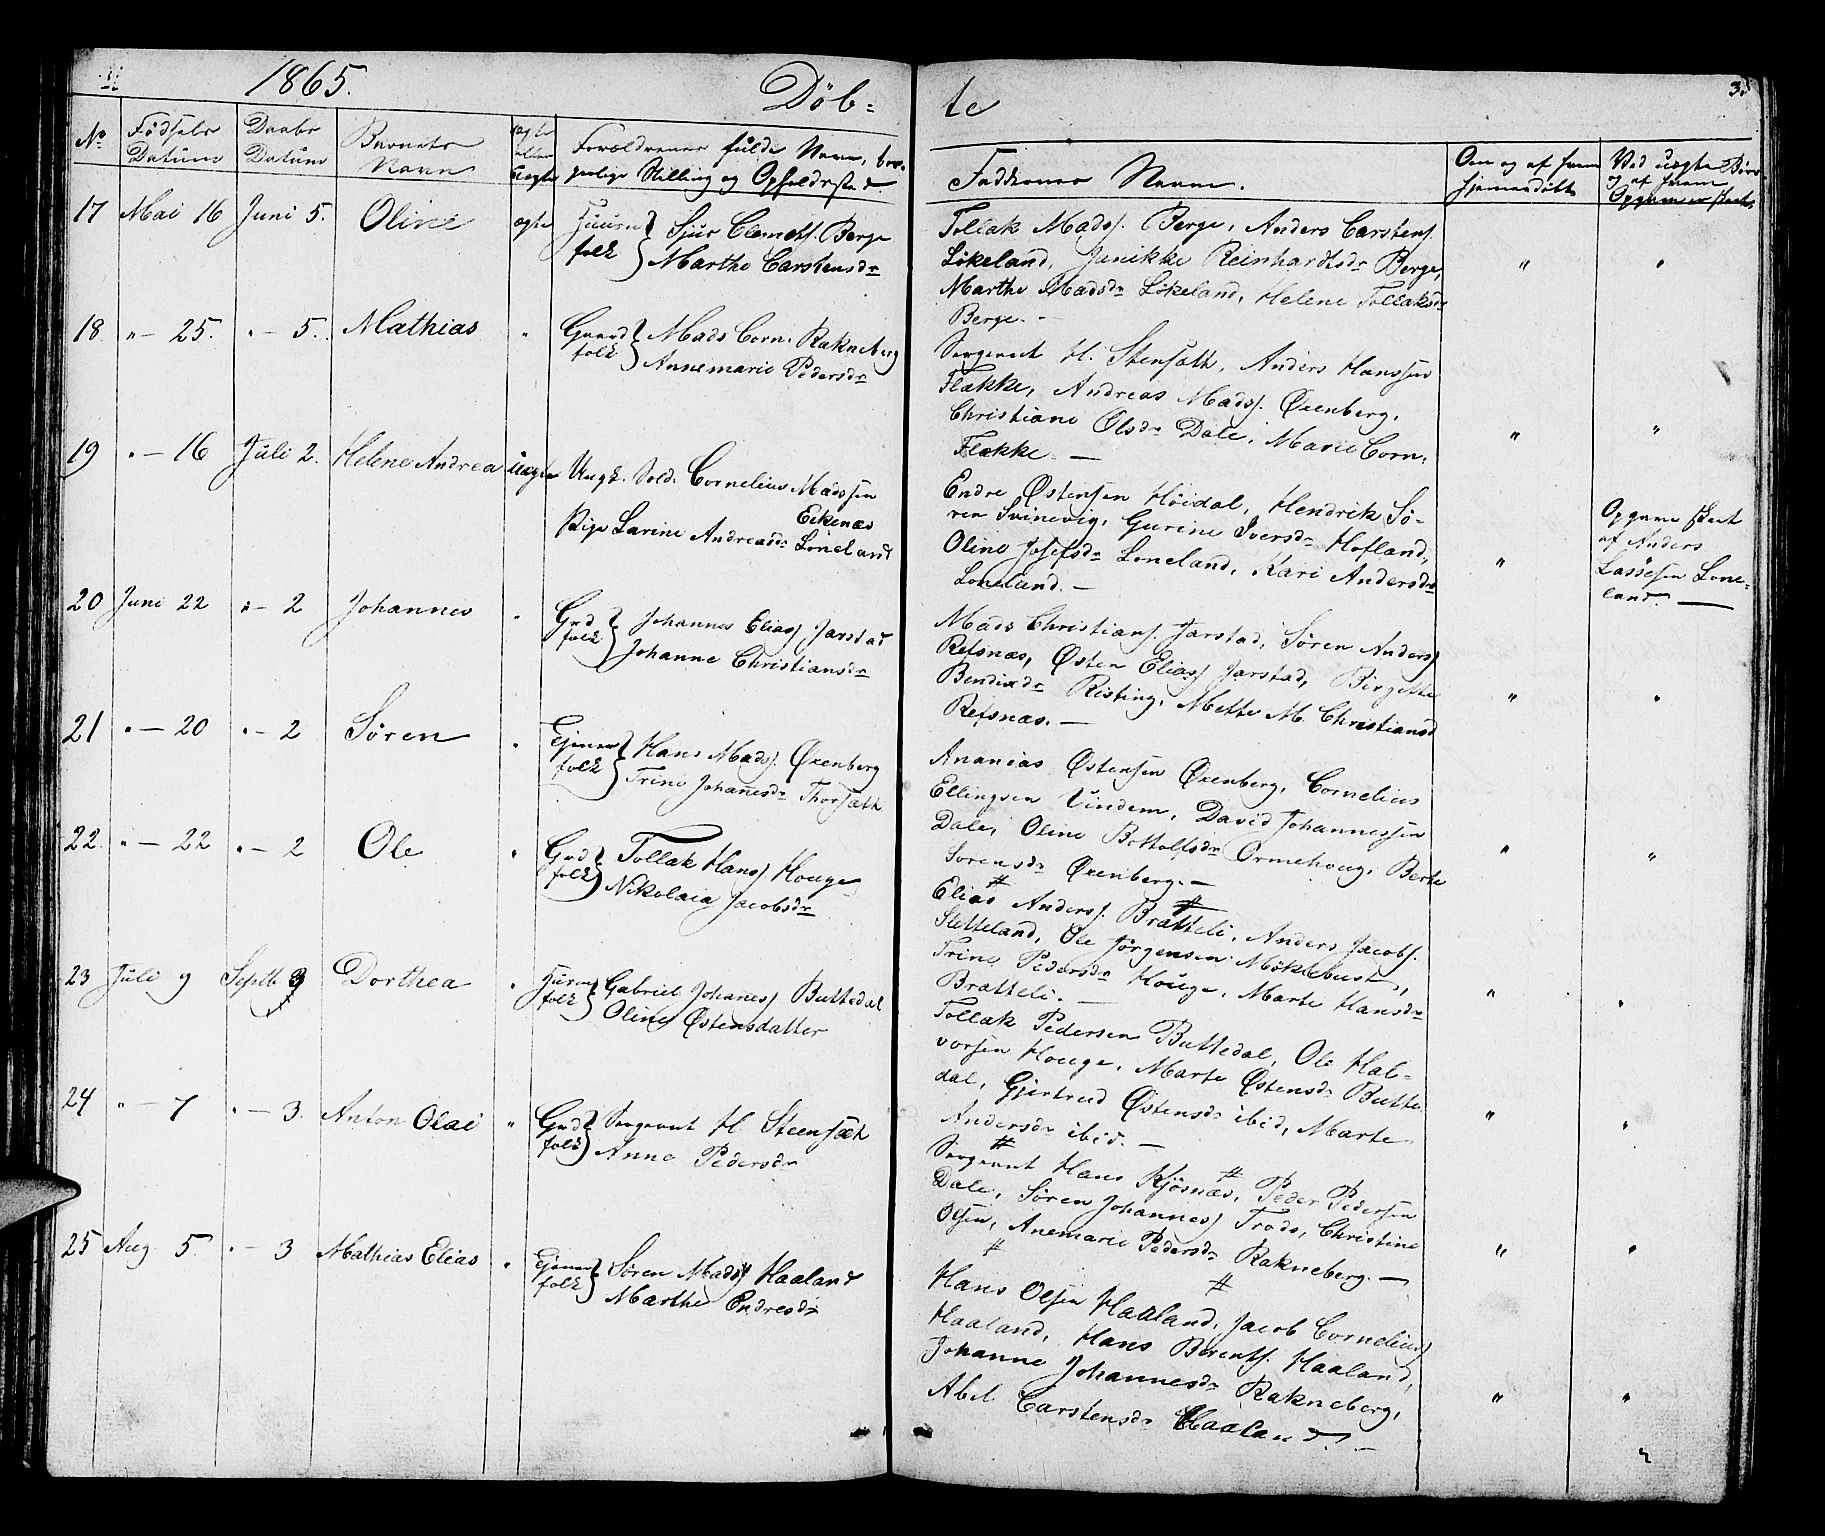 1865.
Døb-
te
35
No
Fødsels
Datum
Daabs
Datum
Barnets
Navn
ægte
eller
uægte
Forældrenes fulde Navn, bor-
gerlige Stilling og Opholdssted
Faddernes Navne.
Om og af hvem
hjemmedøbt
Ved uægte Børn
og af hvem
Opgivelsen skeet
17 Mai 16 Juni 5. Oline ægte Huusm folk } Sjur Clemets. Berge
Marthe Carstensdr
Tollak Madss. Berge, Anders Carstens.
Løkeland, Janikke Reinhardtsdr Berge,
Marthe Madsdr Løkeland, Helene Tollaksdr
Berge. —
" "
18 " — 25. " — 5. Mathias " Gaard folk } Mads Corn. Rakneberg
Annemarie Pedersdr
Sergeant H. Stensæth, Anders Hanssen
Flekke, Andreas Madss. Oxenberg,
Christiane Olsdr Dale, Marie Corn.
Flekke. —
" "
19 " — 16 Juli 2. Helene Andrea uægte Ungk. Sold. Cornelius Madssen
Eikenæs
Pige Larine Andreasdr Loneland
Endre Østensen Høidal, Hendrik Sø-
ren Svinevig, Gurine Iversdr Hofland,
Oline Josefsdr Loneland, Kari Andersdr
Loneland. —
"
Opgave skeet
af Anders
Lassesen Lone-
land. —
20 Juni 22 " — 2 Johannes " Grd folk } Johannes Eliass Jarstad
Johanne Christiansdr
Mads Christians. Jarstad, Søren Anderss
Refsnæs, Østen Eliass Jarstad, Birgitte
Bendixdr Risting, Mette M. Christiansd
Refsnæs. —
" "
21 " — 20 " — 2 Søren " Ejener folk } Hans Madss. Oxenberg
Trine Johanesdr Thorsæth
Ananias Østensen Oxenberg, Cornelius
Ellingsen Vindem, David Johannessen
Dale, Oline Bottolfsdr Ormehoug, Berte
Sørensdr Oxenberg. —
" "
22. " — 22 " — 2 Ole " Grd folk } Tollak Hanss. Houge
Nikolaia Jacobsdr
Elias Anderss. Bratteli, Anders Jacobs.
Sletteland, Ole Jörgensen Møklebust,
Trine Pedersdr Houge, Marte Hansdr
Bratteli. —
" "
23 Juli 9 Septb 3 Dorthea " Husm folk } Gabriel Johaness Buttedal
Oline Østensdatter
Tollak Pedersen Buttedal, Ole Hal-
vorsen Houge, Marte Østensdr Butte
dal, Gjertrud Østensdr ibid, Marte
Andersdr ibid. —
" "
24 " — 7 " — 3. Anton Olai " Grd folk } Sergeant H. Steensæth
Anne Pedersdr
Sergeant Hans Kjösnæs, Peder Pedersen
Dale, Søren Johanness Trads, Christine
Olsen, Anemarie Pedersdr Rakneberg. —
" "
25 Aug 5. " — 3 Mathias Elias " Ejener folk } Søren Madss Haaland
Marthe Endresdr
Hans Olsen Haaland, Jacob Corneliuss
Haaland, Hans Berents. Haaland,
Johanne Johannesdr Rakneberg,
Abel Carstensdr Haaland. —
" "